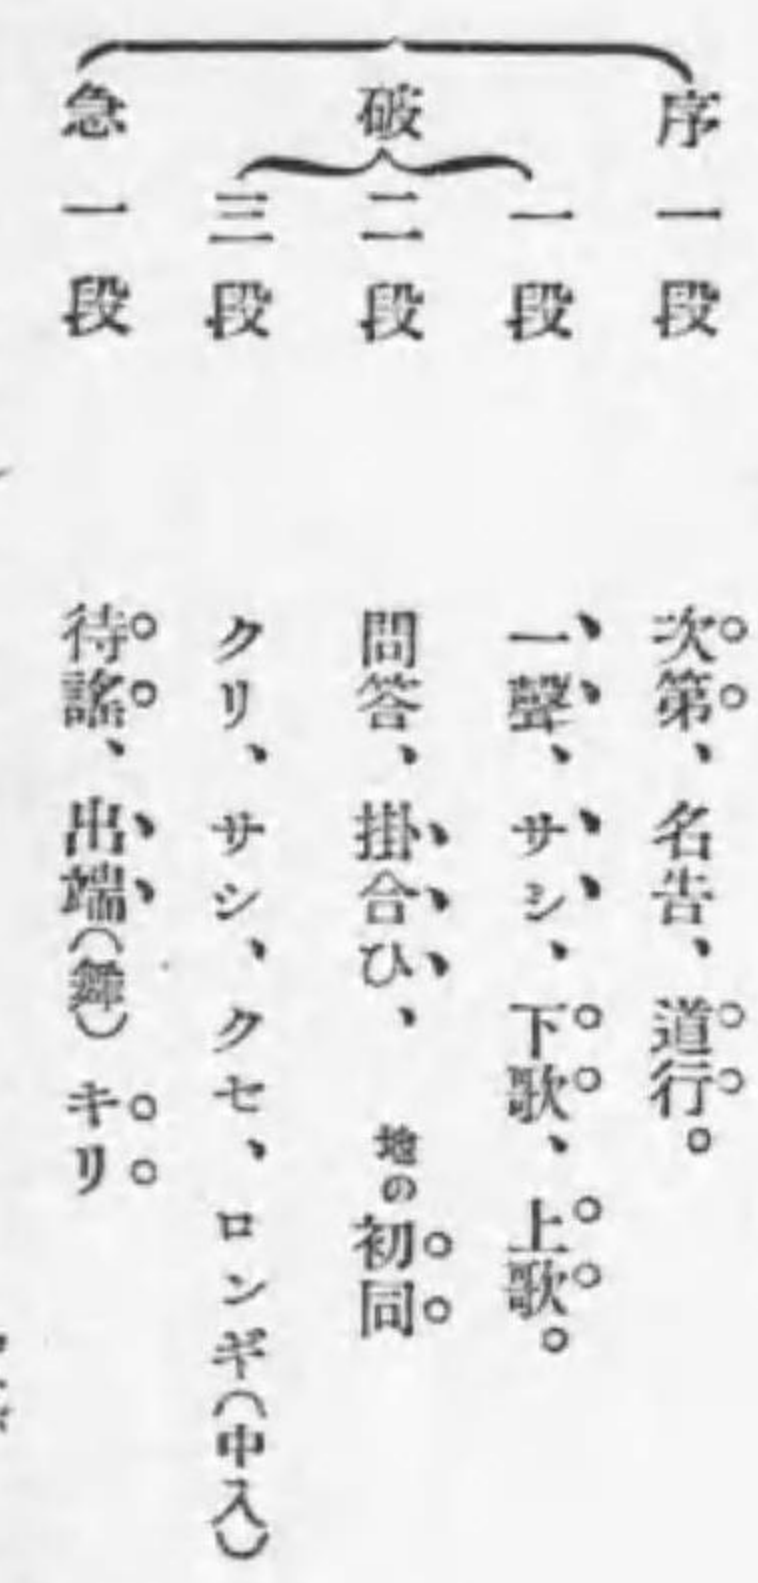 序一段 次第、名告、道行。
破
一段 一聲、サシ、下歌、上歌。
二段 問答、掛合ひ、地の初同
三段 クリ、サシ、クセ、ロンギ(中入)
急一段 待謠、出端(舞)キリ